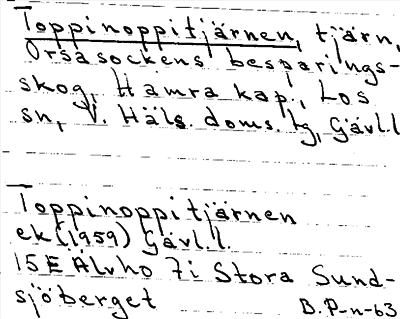 Toppinoppitjärnen, tjärn,
Orsasockens besparings-
skog, Hamra kap., Los
sn, V. Häls. doms. tg, Gävl.l
Toppinoppitjärnen
ek (1959) Gävl.l.
15E Älvho 7i Stora Sund-
sjöberget B.P-n-63